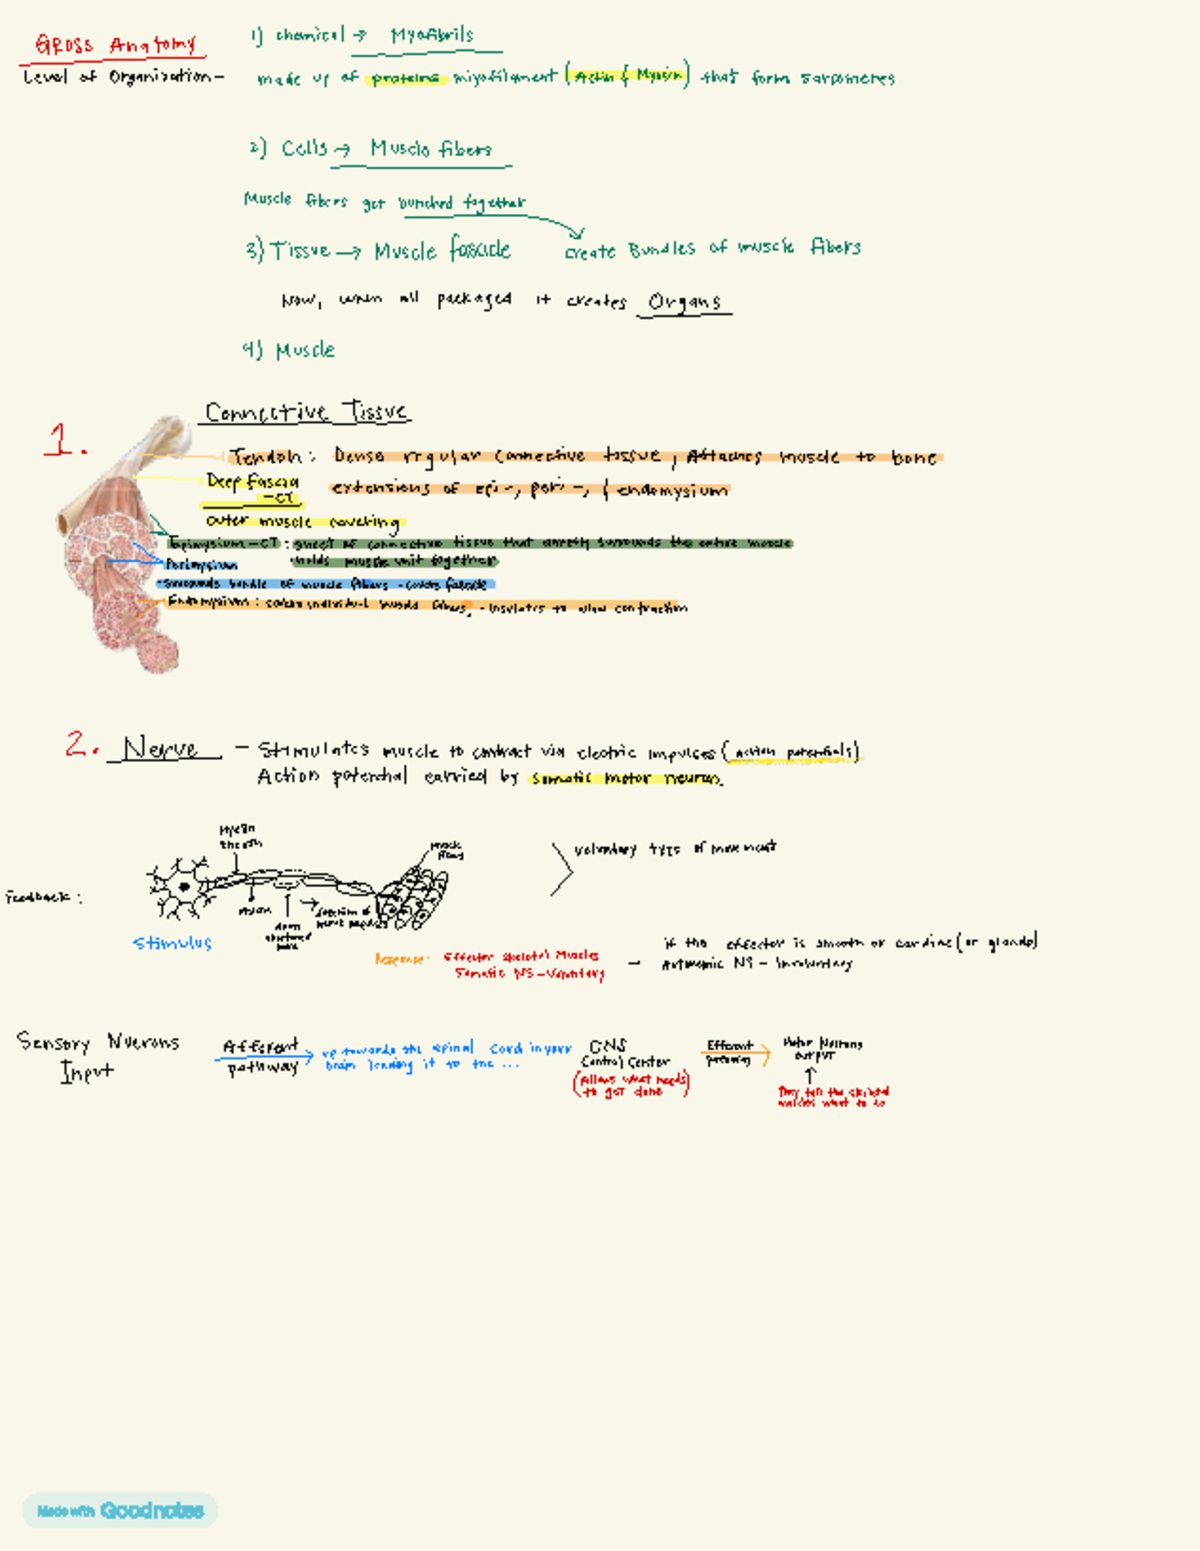 GROSS Anatomy
Level of Organization -
1) chemical → Myofibrils
made up of proteins myofilament (Actin & Myosin) that form sarcomeres
2) Cells → Muscle fibers
Muscle fibers get bunched together
3) Tissue → Muscle fascicle create Bundles of muscle fibers
Now, when all packaged it creates Organs
4) Muscle
Connective Tissue
1.
Tendon: Dense regular connective tissue, Attaches muscle to bone
Deep fascia
- CT
extensions of epi-, peri-, & endomysium
outer muscle covering
Epimysium - CT: sheet of connective tissue that directly surrounds the entire muscle
Perimysium
holds muscle unit together
- surrounds bundle of muscle fibers - covers fascicle
Endomysium: covers individual muscle fibers, - insulates to allow contraction
2. Nerve - Stimulates muscle to contract via electric impulses (action potentials)
Action potential carried by somatic motor neuron.
Myelin
sheath
muscle
fibers
voluntary type of movement
Feedback:
Axon
Direction of
Stimulus
Response: Effector skeletal Muscles
Somatic NS - Voluntary
- if the effector is smooth or cardiac (or glands)
Autonomic NS - Involuntary
Sensory Nuerons
Input
Afferent
pathway
up towards the spinal cord in your
brain leading it to the ...
CNS
Control Center
(Allows what needs
to get done)
Efferent
pathway
Motor Neurons
output
They tell the skeletal
muscles what to do
Made with Goodnotes